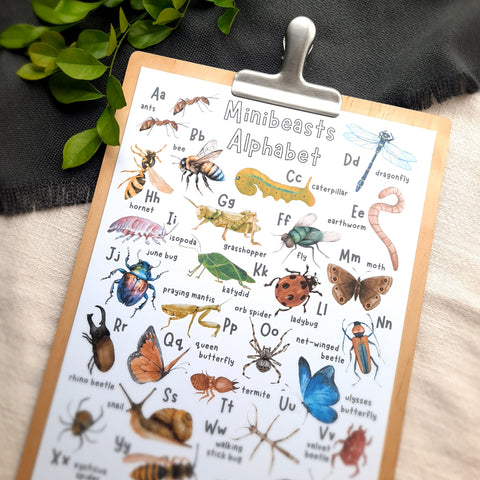 Minibeasts
Alphabet
Aa
ants
Bb
bee
Cc
caterpillar
Dd
dragonfly
Ee
earthworm
Ff
fly
Gg
grasshopper
Hh
hornet
Ii
isopoda
Jj
june bug
Kk
katydid
Ll
ladybug
Mm
moth
Nn
net-winged
beetle
Oo
orb spider
Pp
praying mantis
Qq
queen
butterfly
Rr
rhino beetle
Ss
snail
Tt
termite
Uu
ulysses
butterfly
Vv
velvet
beetle
Ww
walking
stick bug
Xx
xysticus
spider
Yy